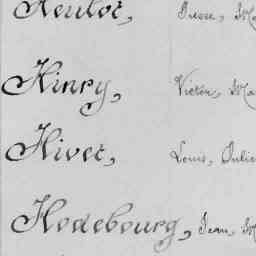 Heulot, Pierre, Ma
Hinry, Victor, Ma
Hivet, Louis, Julie
Hodebourg, Jean, M